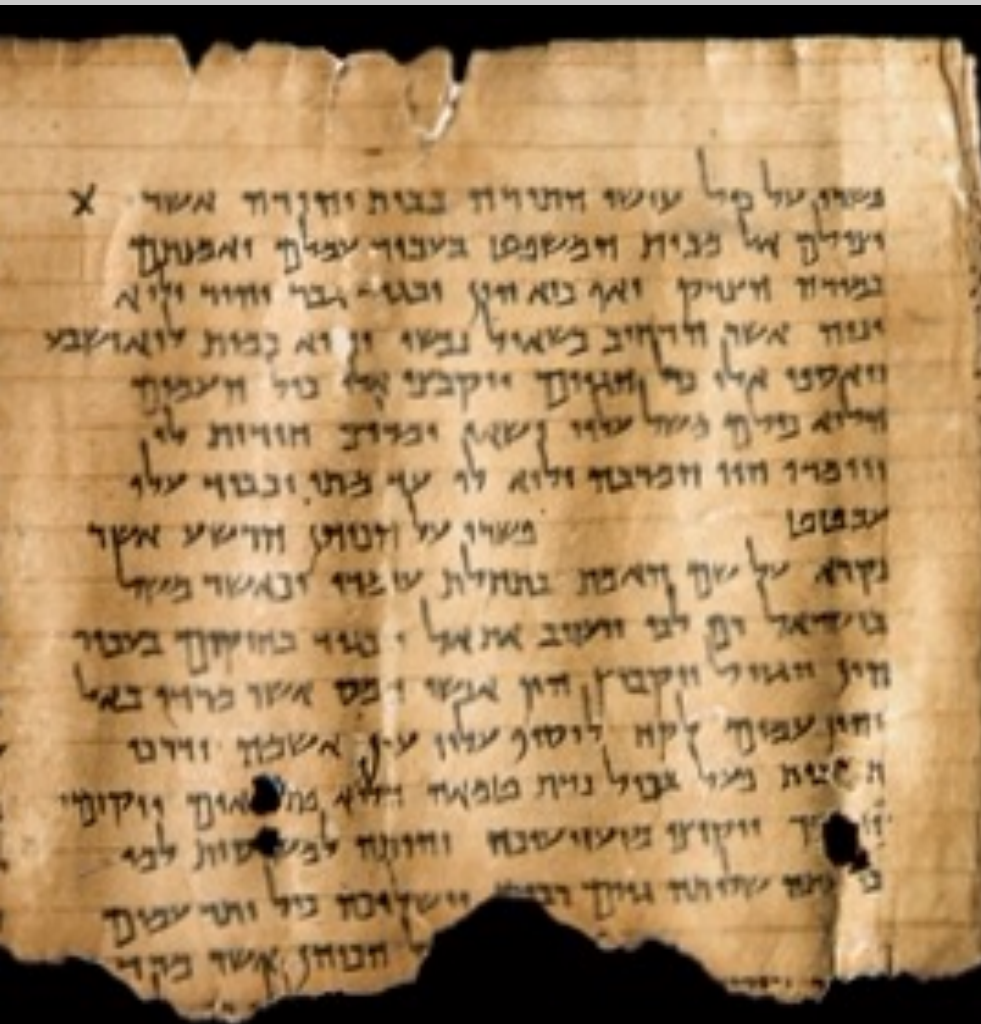 פשרו על כול עושי התורה בבית יהודה אשר X
יצילם אל מבית המשפט בעבור עמלם ואמנתם
במורה הצדק ואף כיא הון יבגוד גבר יהיר ולוא
ינוה אשר הרחיב כשאול נפשו והוא כמות לוא ישבע
ויאספו אלו כול הגוים ויקבצו אלו כול העמים
הלוא כולם משל עליו ישאו ומליצי חידות לו
ויומרו הוי המרבה ולוא לו עד מתי יכביד עלו
עבטט פשרו על הכוהן הרשע אשר
נקרא על שם האמת בתחלת עומדו וכאשר משל
בישראל רם לבו ויעזוב את אל ויבגוד בחוקים בעבור
הון ויגזול ויקבוץ הון אנשי חמס אשר מרדו באל
והון עמים לקח לוסיף עליו עון אשמה ודרכי
פעל בכול נדת טמאה הלוא ויקומו
ויקיצו מזעזיעיכה והייתה למו
שלותה גוים וישלוכה כול יתר עמים
הכוהן אשר